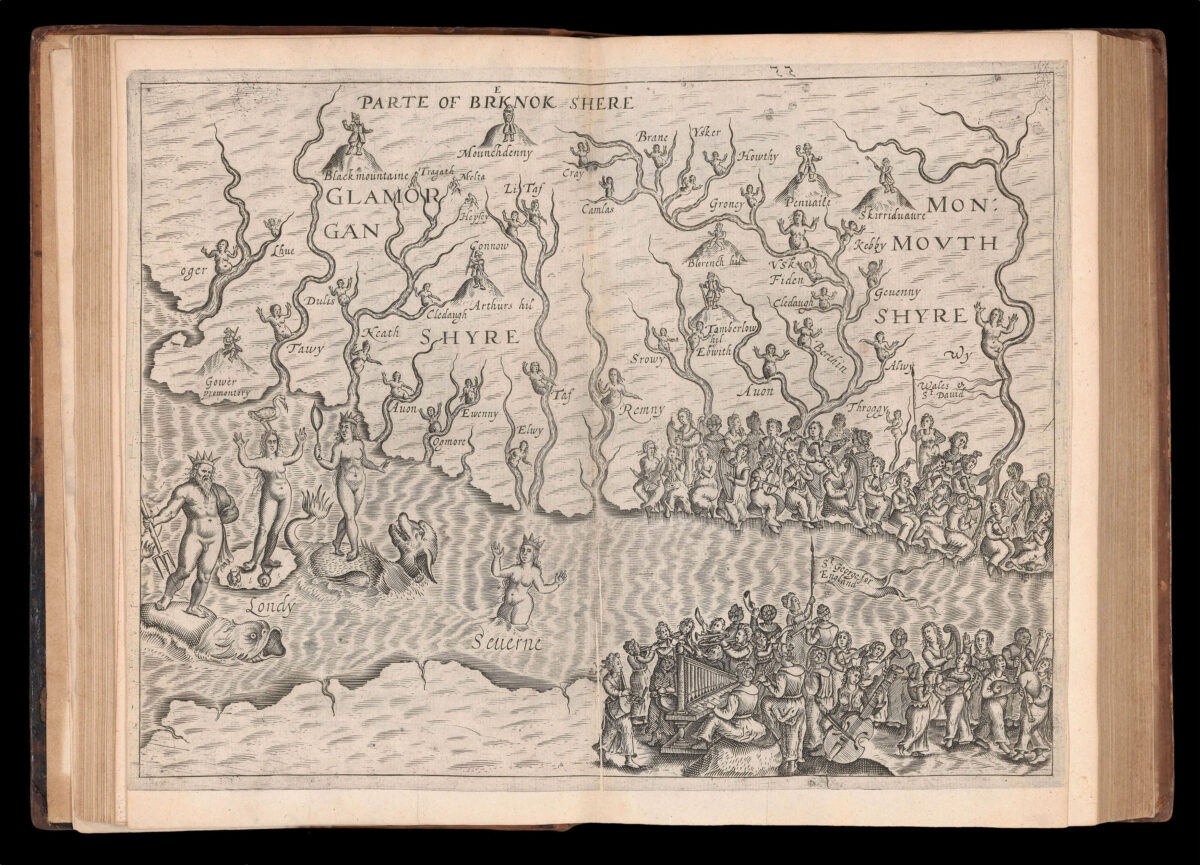 PARTE OF BREKNOK SHERE
Blackmountaine
Mounchdenny
Tragath
Melta
Hepsey
GLAMOR
GAN
SHYRE
oger
Lhue
Dulis
Tawy
Neath
Cledaugh
Gower
promontory
Connow
Arthurs hil
Lit Taf
Taf
Avon
Ewenny
Ogmore
Elwy
Remny
Cray
Camlas
Brane
Ysker
Howthy
Groney
Penuaile
Skirriduaure
MON:
MOVTH
SHYRE
Kebby
Blorench hil
Vsk
Fiden
Geuenny
Cledaugh
Tamberlow
hil
Ebwith
Srowy
Auon
Berthin
Alwy
Wy
Throggy
Wales &
St David
Londy
Seuerne
St George for
England